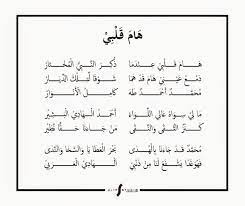 هَامَ قَلْبِيْ
هَامَ قَلْبِي عِنْدَمَا ذُكِرَ النَّبِيُّ الْمُخْتَارْ
دَمْعُ عَيْنِي هَامَ قَدْ هَمَا شَوْقًا لِتِلْكَ الدِّيَارْ
مُحَمَّدٌ أَحْمَدُ طَهَ كَامِلُ الْأَنْوَارْ
مَا لِي سِوَاهُ عَالِي اللِّوَاءْ أَحْمَدُ الْهَادِيْ الْبَشِيرْ
كَنْزُ التُّقَى وَالنَّقَى مَنْ جَاءَنَا حَقًّا
مُحَمَّدٌ قَدْ جَاءَنَا بِالْهُدَى بَحْرُ الْعَطَايَا وَالسَّخَا وَالنَّدَى
يَشْفَعُ لَنَا مِنْ ذَنْبِي الْهَادِيْ الْعَرَبِيْ